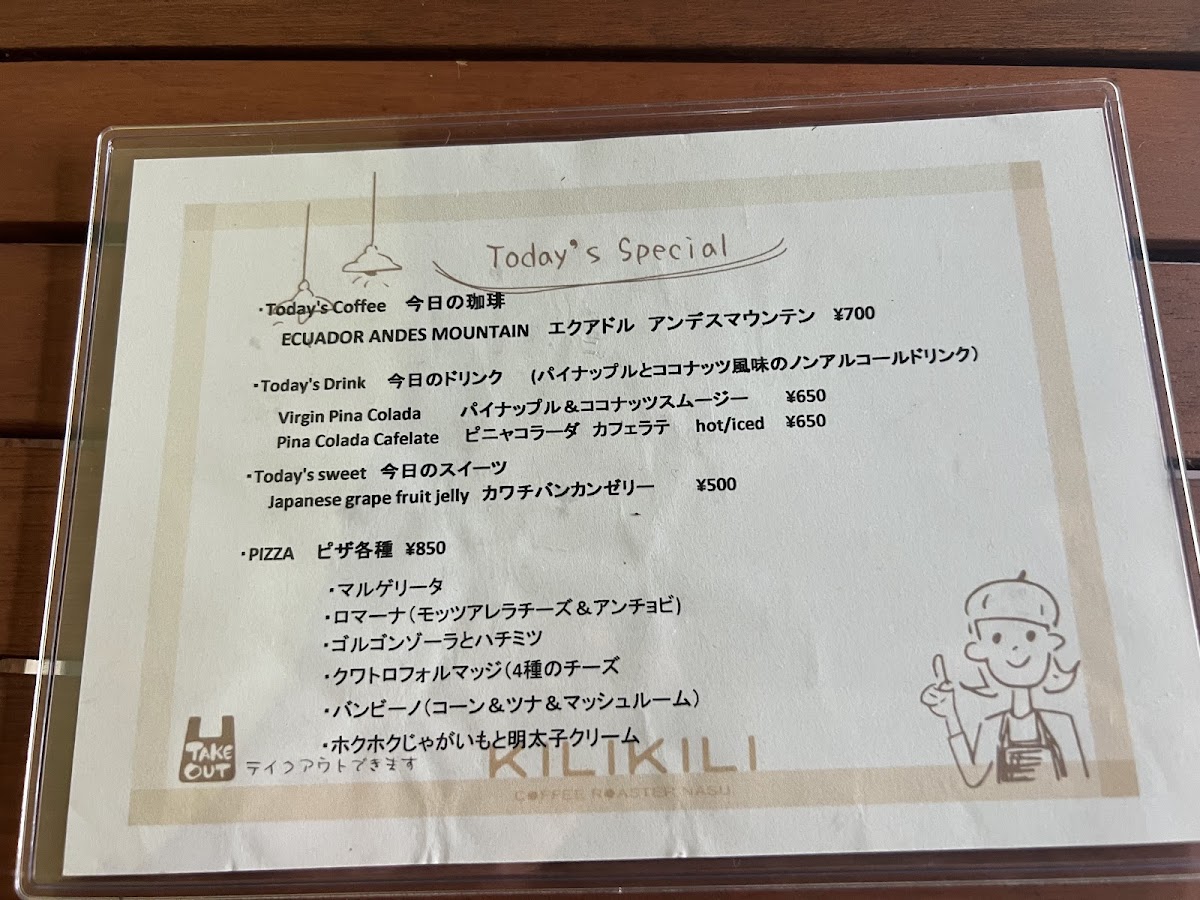 Today's Special
・Today's Coffee 今日の珈琲
ECUADOR ANDES MOUNTAIN エクアドル アンデスマウンテン ¥700
・Today's Drink 今日のドリンク (パイナップルとココナッツ風味のノンアルコールドリンク)
Virgin Pina Colada パイナップル＆ココナッツスムージー ¥650
Pina Colada Cafelate ピニャコラーダ カフェラテ hot/iced ¥650
・Today's sweet 今日のスイーツ
Japanese grape fruit jelly カワチバンカンゼリー ¥500
・PIZZA ピザ各種 ¥850
・マルゲリータ
・ロマーナ（モッツアレラチーズ＆アンチョビ)
・ゴルゴンゾーラとハチミツ
・クワトロフォルマッジ（4種のチーズ
・バンビーノ（コーン＆ツナ＆マッシュルーム）
・ホクホクじゃがいもと明太子クリーム
TAKE OUT テイクアウトできます
KILIKILI
COFFEE ROASTER NASU